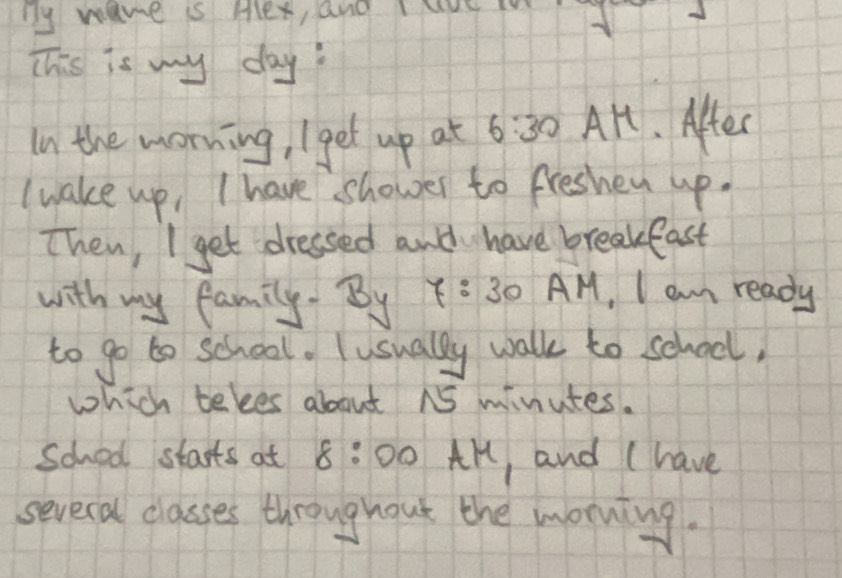 My name is Alex, and I live in
This is my day:
In the morning, I get up at 6:30 AM. After
I wake up, I have shower to freshen up.
Then, I get dressed and have breakfast
with my family. By 7:30 AM, I am ready
to go to school. I usually walk to school,
which takes about 15 minutes.
School starts at 8:00 AM, and I have
several classes throughout the morning.